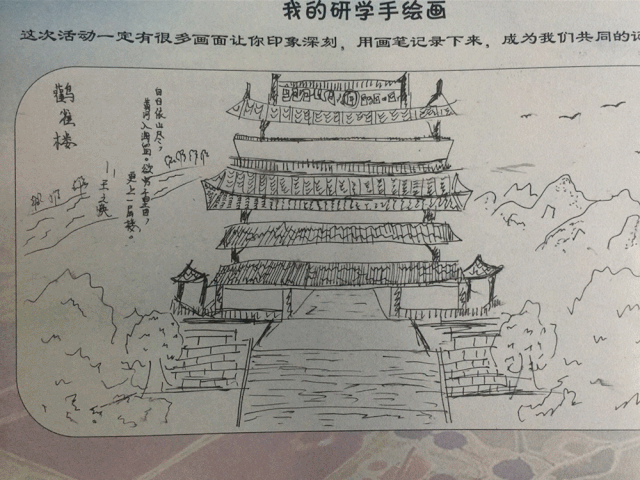 我的研学手绘画
这次活动一定有很多画面让你印象深刻，用画笔记录下来，成为我们共同的记
鹳雀楼
白日依山尽，
黄河入海流。欲穷千里目，
更上一层楼。
——王之涣